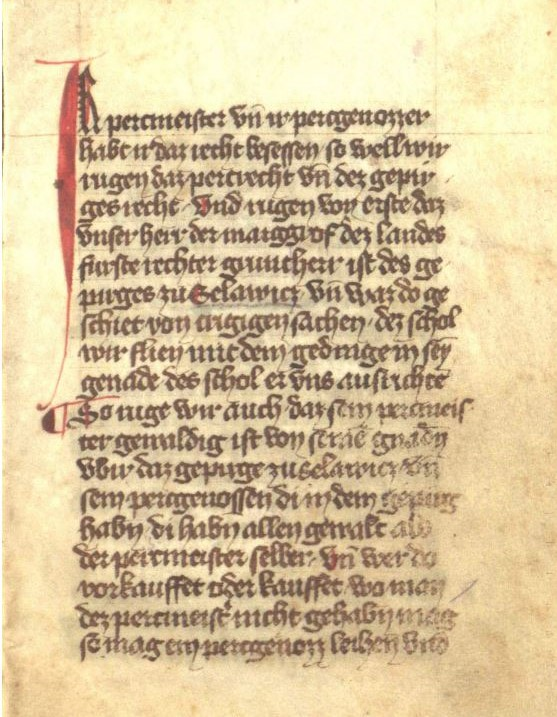 Ir percmeister vñ ir percgenozzen
habt ir daz recht besessen so well wir
rugen daz percrecht vñ dez gepir
ges recht · Vnd rugen von erste daz
vnser herr der marggrof dez landes
furste rechter gruntherr ist des ge
purges zu Selawicz vñ waz do ge
schiet von crigigen sachen · dez schol
wir flien mit dem gedinge in sey
genade des schol er vns ausrichte
So ruge wir auch daz sein percmeis
ter gewaldig ist von seinē gnadn
vbir daz gepirge zu selawicz vñ
sein percgenossen di in dem gepirg
habn di habn allen gewalt als
der percmeister selber · Vñ wer do
vorkauffet oder kauffet wo man
dez percmeist' nicht gehabn mag
so mag ein percgenozz leihen vnd